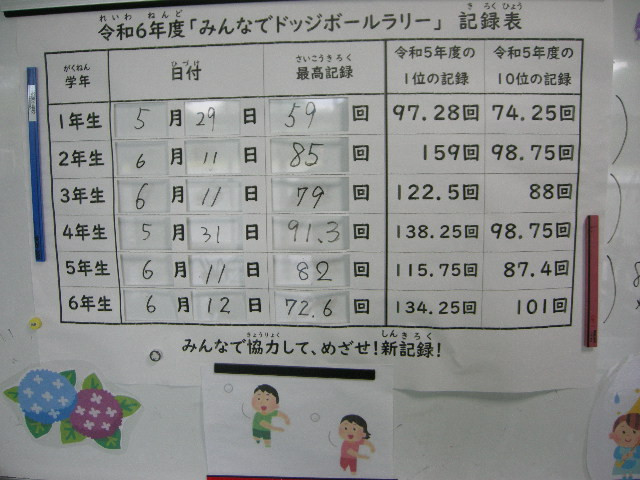 令和6年度「みんなでドッジボールラリー」 記録表
学年 日付 最高記録 令和5年度の1位の記録 令和5年度の10位の記録
1年生 5月29日 59回 97.28回 74.25回
2年生 6月11日 85回 159回 98.75回
3年生 6月11日 79回 122.5回 88回
4年生 5月31日 91.3回 138.25回 98.75回
5年生 6月11日 82回 115.75回 87.4回
6年生 6月12日 72.6回 134.25回 101回
みんなで協力して、めざせ!新記録!